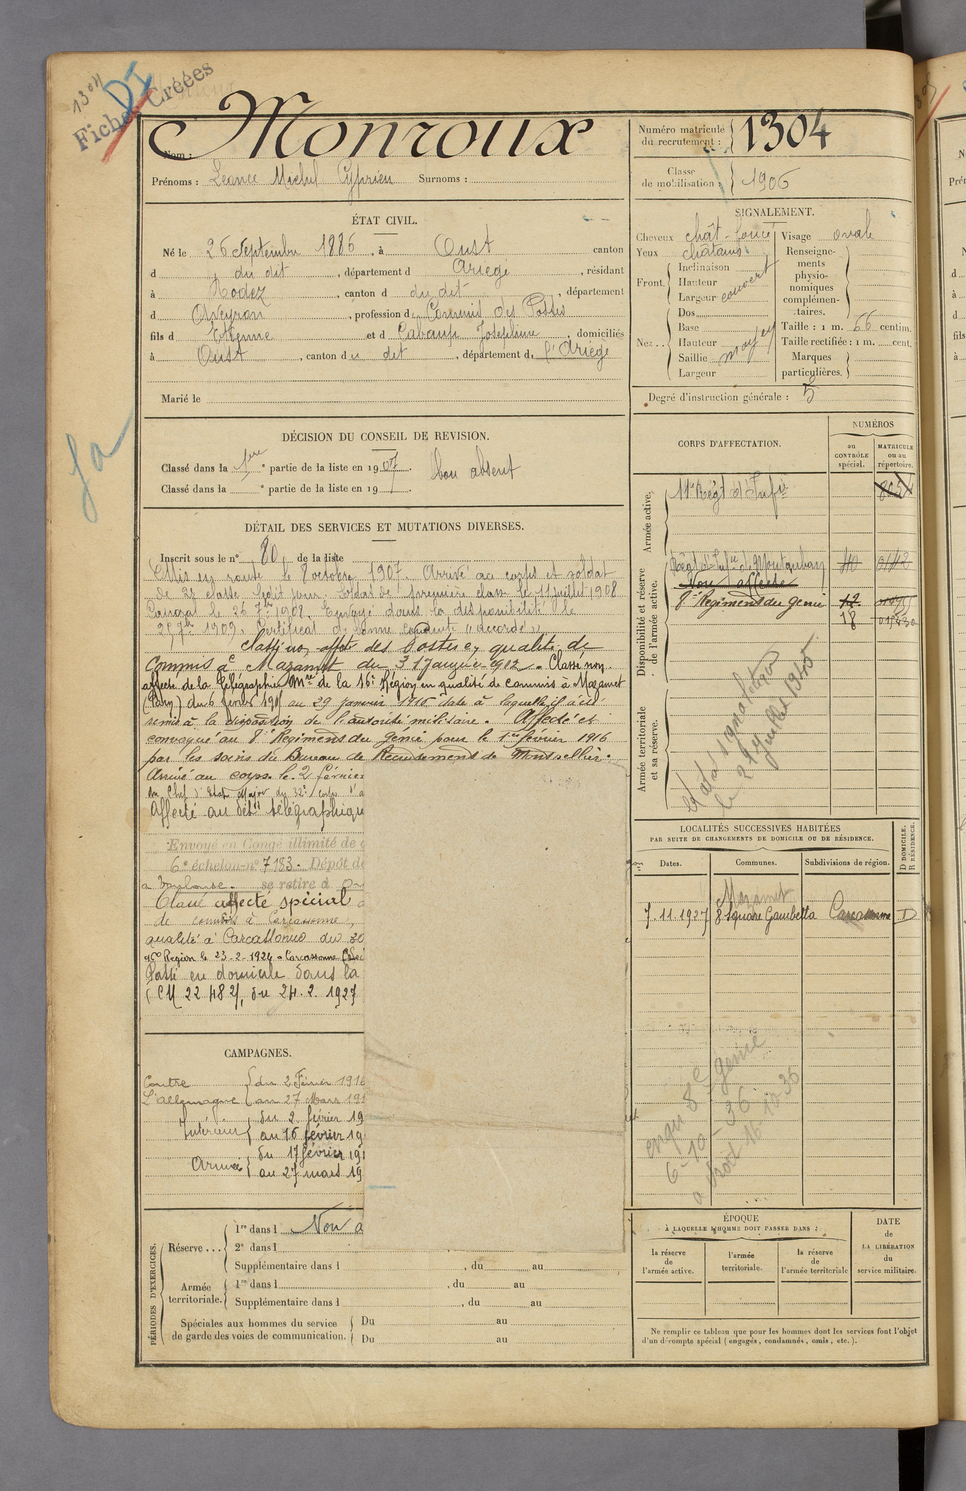 1304
Fiches Créées
Monroux
Nom :
Prénoms : Léance Michel Cyprien Surnoms :
Numéro matricule du recrutement : 1304
Classe de mobilisation : 1906
ÉTAT CIVIL.
Né le 26 Septembre 1886, à Oust canton
d du dit, département d Ariège, résidant
à Rodez, canton d du dit, département
d Aveyron, profession de Commis des Postes
fils d Etienne et d Cabanp Joséphine, domiciliés
à Oust, canton du dit, département de l'Ariège
Marié le
SIGNALEMENT.
Cheveux chât-foncé Visage ovale
Yeux châtains
Front Inclinaison
Hauteur
Largeur couvert
Nez Dos
Base
Hauteur
Saillie moyen
Largeur
Renseignements physionomiques complémentaires.
Taille : 1 m. 66 centim.
Taille rectifiée : 1 m. cent.
Marques particulières.
Degré d'instruction générale : 3
DÉCISION DU CONSEIL DE REVISION.
Classé dans la 1ère partie de la liste en 1907. bon absent
Classé dans la e partie de la liste en 19
DÉTAIL DES SERVICES ET MUTATIONS DIVERSES.
Inscrit sous le n° 80 de la liste
Mis en route le 8 octobre 1907. Arrivé au corps et soldat
de 2e classe ledit jour. Soldat de première classe le 11 juillet 1908
Caporal le 26 7bre 1908. Envoyé dans la disponibilité le
25 7bre 1909. Certificat de bonne conduite "accordé"
Classé non affecté des Postes en qualité de
Commis à Mazamet du 31 Janvier 1912. Classé non
affecté de la Télégraphie Mre de la 16e Région en qualité de commis à Mazamet
(Tarn) du 6 février 191 au 29 janvier 1916 date à laquelle il a été
remis à la disposition de l'autorité militaire. Affecté et
convoqué au 8e Régiment du Génie pour le 1er février 1916
par les soins du Bureau de Recrutement de Montpellier.
Arrivé au corps le 2 février
Affecté au Dét. télégraphiqu
Envoyé en Congé illimité de
6e échelon n° 7183. Dépôt de
à Toulouse. se retire à
Classé affecté spécial
de commis à Carcassonne,
qualité à Carcassonne du 30
16e Région le 23.2.1924 Carcassonne
Passé en domicile dans la
(CM 22 482), du 24.2.1927
CORPS D'AFFECTATION.
NUMÉROS
au CONTRÔLE spécial.
MATRICULE ou au répertoire.
Armée active.
11e Régt d'Infie
Disponibilité et réserve de l'armée active.
Régt d'Infie de Montauban
Non affecté
8e Régiment du Génie 12
18
Armée territoriale et sa réserve.
le 21 juillet 1945
LOCALITÉS SUCCESSIVES HABITÉES
PAR SUITE DE CHANGEMENTS DE DOMICILE OU DE RÉSIDENCE.
Dates. Communes. Subdivisions de région. D DOMICILE. R RÉSIDENCE.
Mazamet
7.11.1927 8 Square Gambetta Carcassonne D
8e Génie
6-10-36
CAMPAGNES.
Contre L'allemagne du 2 Février 1916
au 27 Mars 191
Intérieur du 2 février 19
au 16 février 19
Armées du 17 février 191
au 27 mars 19
PÉRIODES D'EXERCICES.
Réserve ... 1re dans l Non a
2e dans l
Supplémentaire dans l , du au
Armée territoriale. 1re dans l , du au
Supplémentaire dans l , du au
Spéciales aux hommes du service de garde des voies de communication. Du au
Du au
ÉPOQUE
À LAQUELLE L'HOMME DOIT PASSER DANS :
la réserve de l'armée active.
l'armée territoriale.
la réserve de l'armée territoriale
DATE de LA LIBÉRATION du service militaire.
Ne remplir ce tableau que pour les hommes dont les services font l'objet
d'un décompte spécial (engagés, condamnés, omis, etc.).